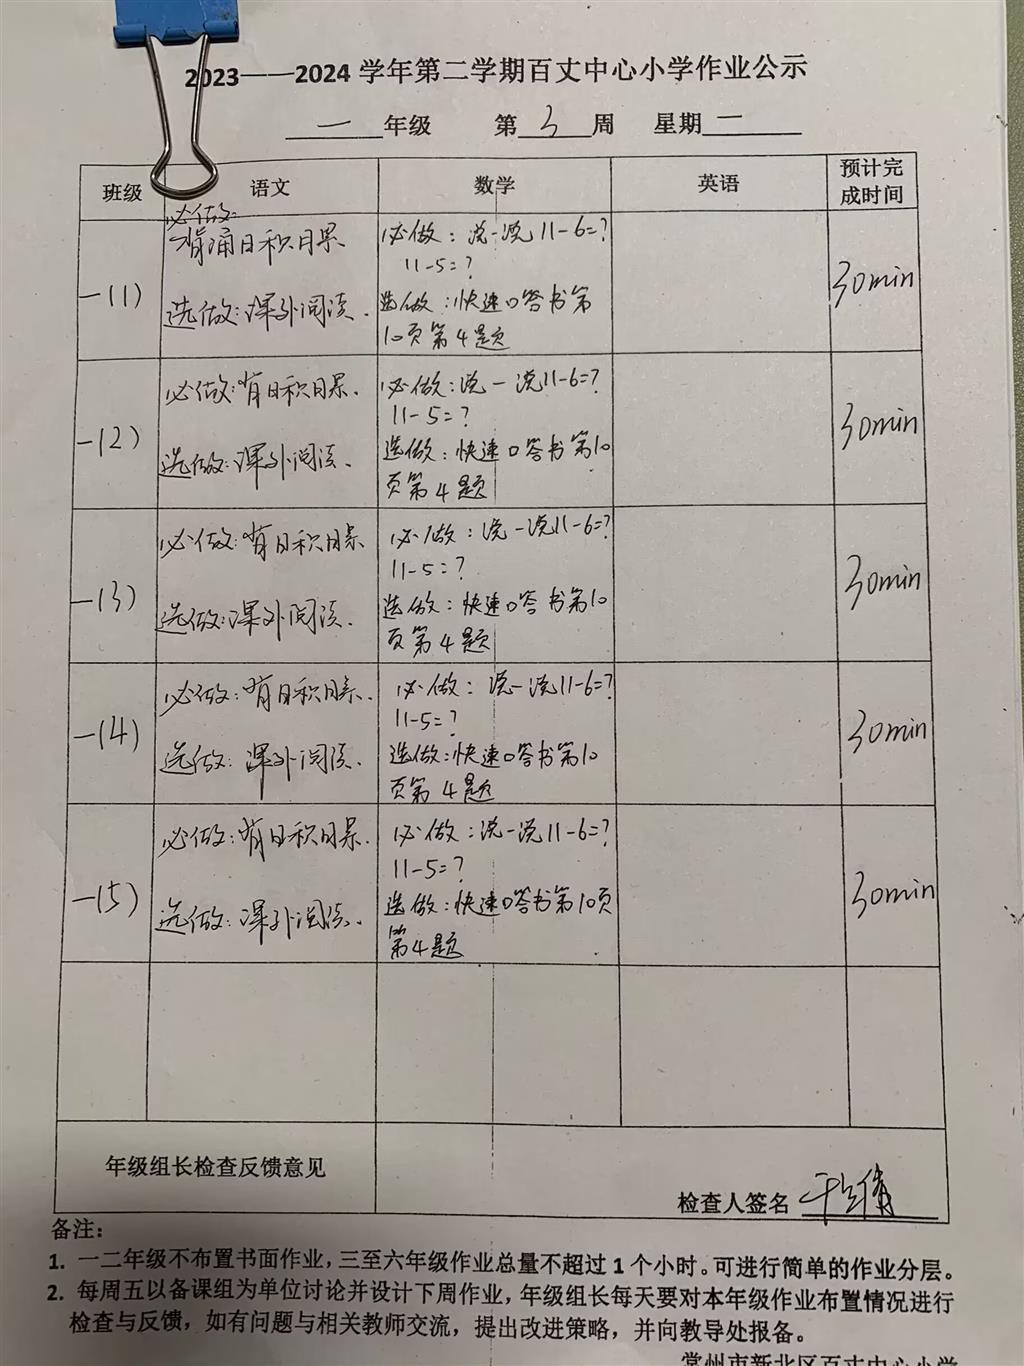 2023——2024 学年第二学期百丈中心小学作业公示
一 年级 第 3 周 星期 一
班级 语文 数学 英语 预计完成时间
一(1)
必做:
背诵日积月累
选做:课外阅读.
必做:说一说 11-6=?
11-5=?
选做:快速口答书第
10页第4题
30min
一(2)
必做:背日积月累.
选做:课外阅读.
必做:说一说11-6=?
11-5=?
选做:快速口答书第10
页第4题
30min
一(3)
必做:背日积月累
选做:课外阅读.
必做:说一说11-6=?
11-5=?
选做:快速口答书第10
页第4题
30min
一(4)
必做:背日积月累.
选做:课外阅读.
必做:说一说11-6=?
11-5=?
选做:快速口答书第10
页第4题
30min
一(5)
必做:背日积月累.
选做:课外阅读.
必做:说一说11-6=?
11-5=?
选做:快速口答书第10页
第4题
30min
年级组长检查反馈意见
检查人签名
备注:
1. 一二年级不布置书面作业，三至六年级作业总量不超过 1 个小时。可进行简单的作业分层。
2. 每周五以备课组为单位讨论并设计下周作业，年级组长每天要对本年级作业布置情况进行
检查与反馈，如有问题与相关教师交流，提出改进策略，并向教导处报备。
常州市新北区百丈中心小学